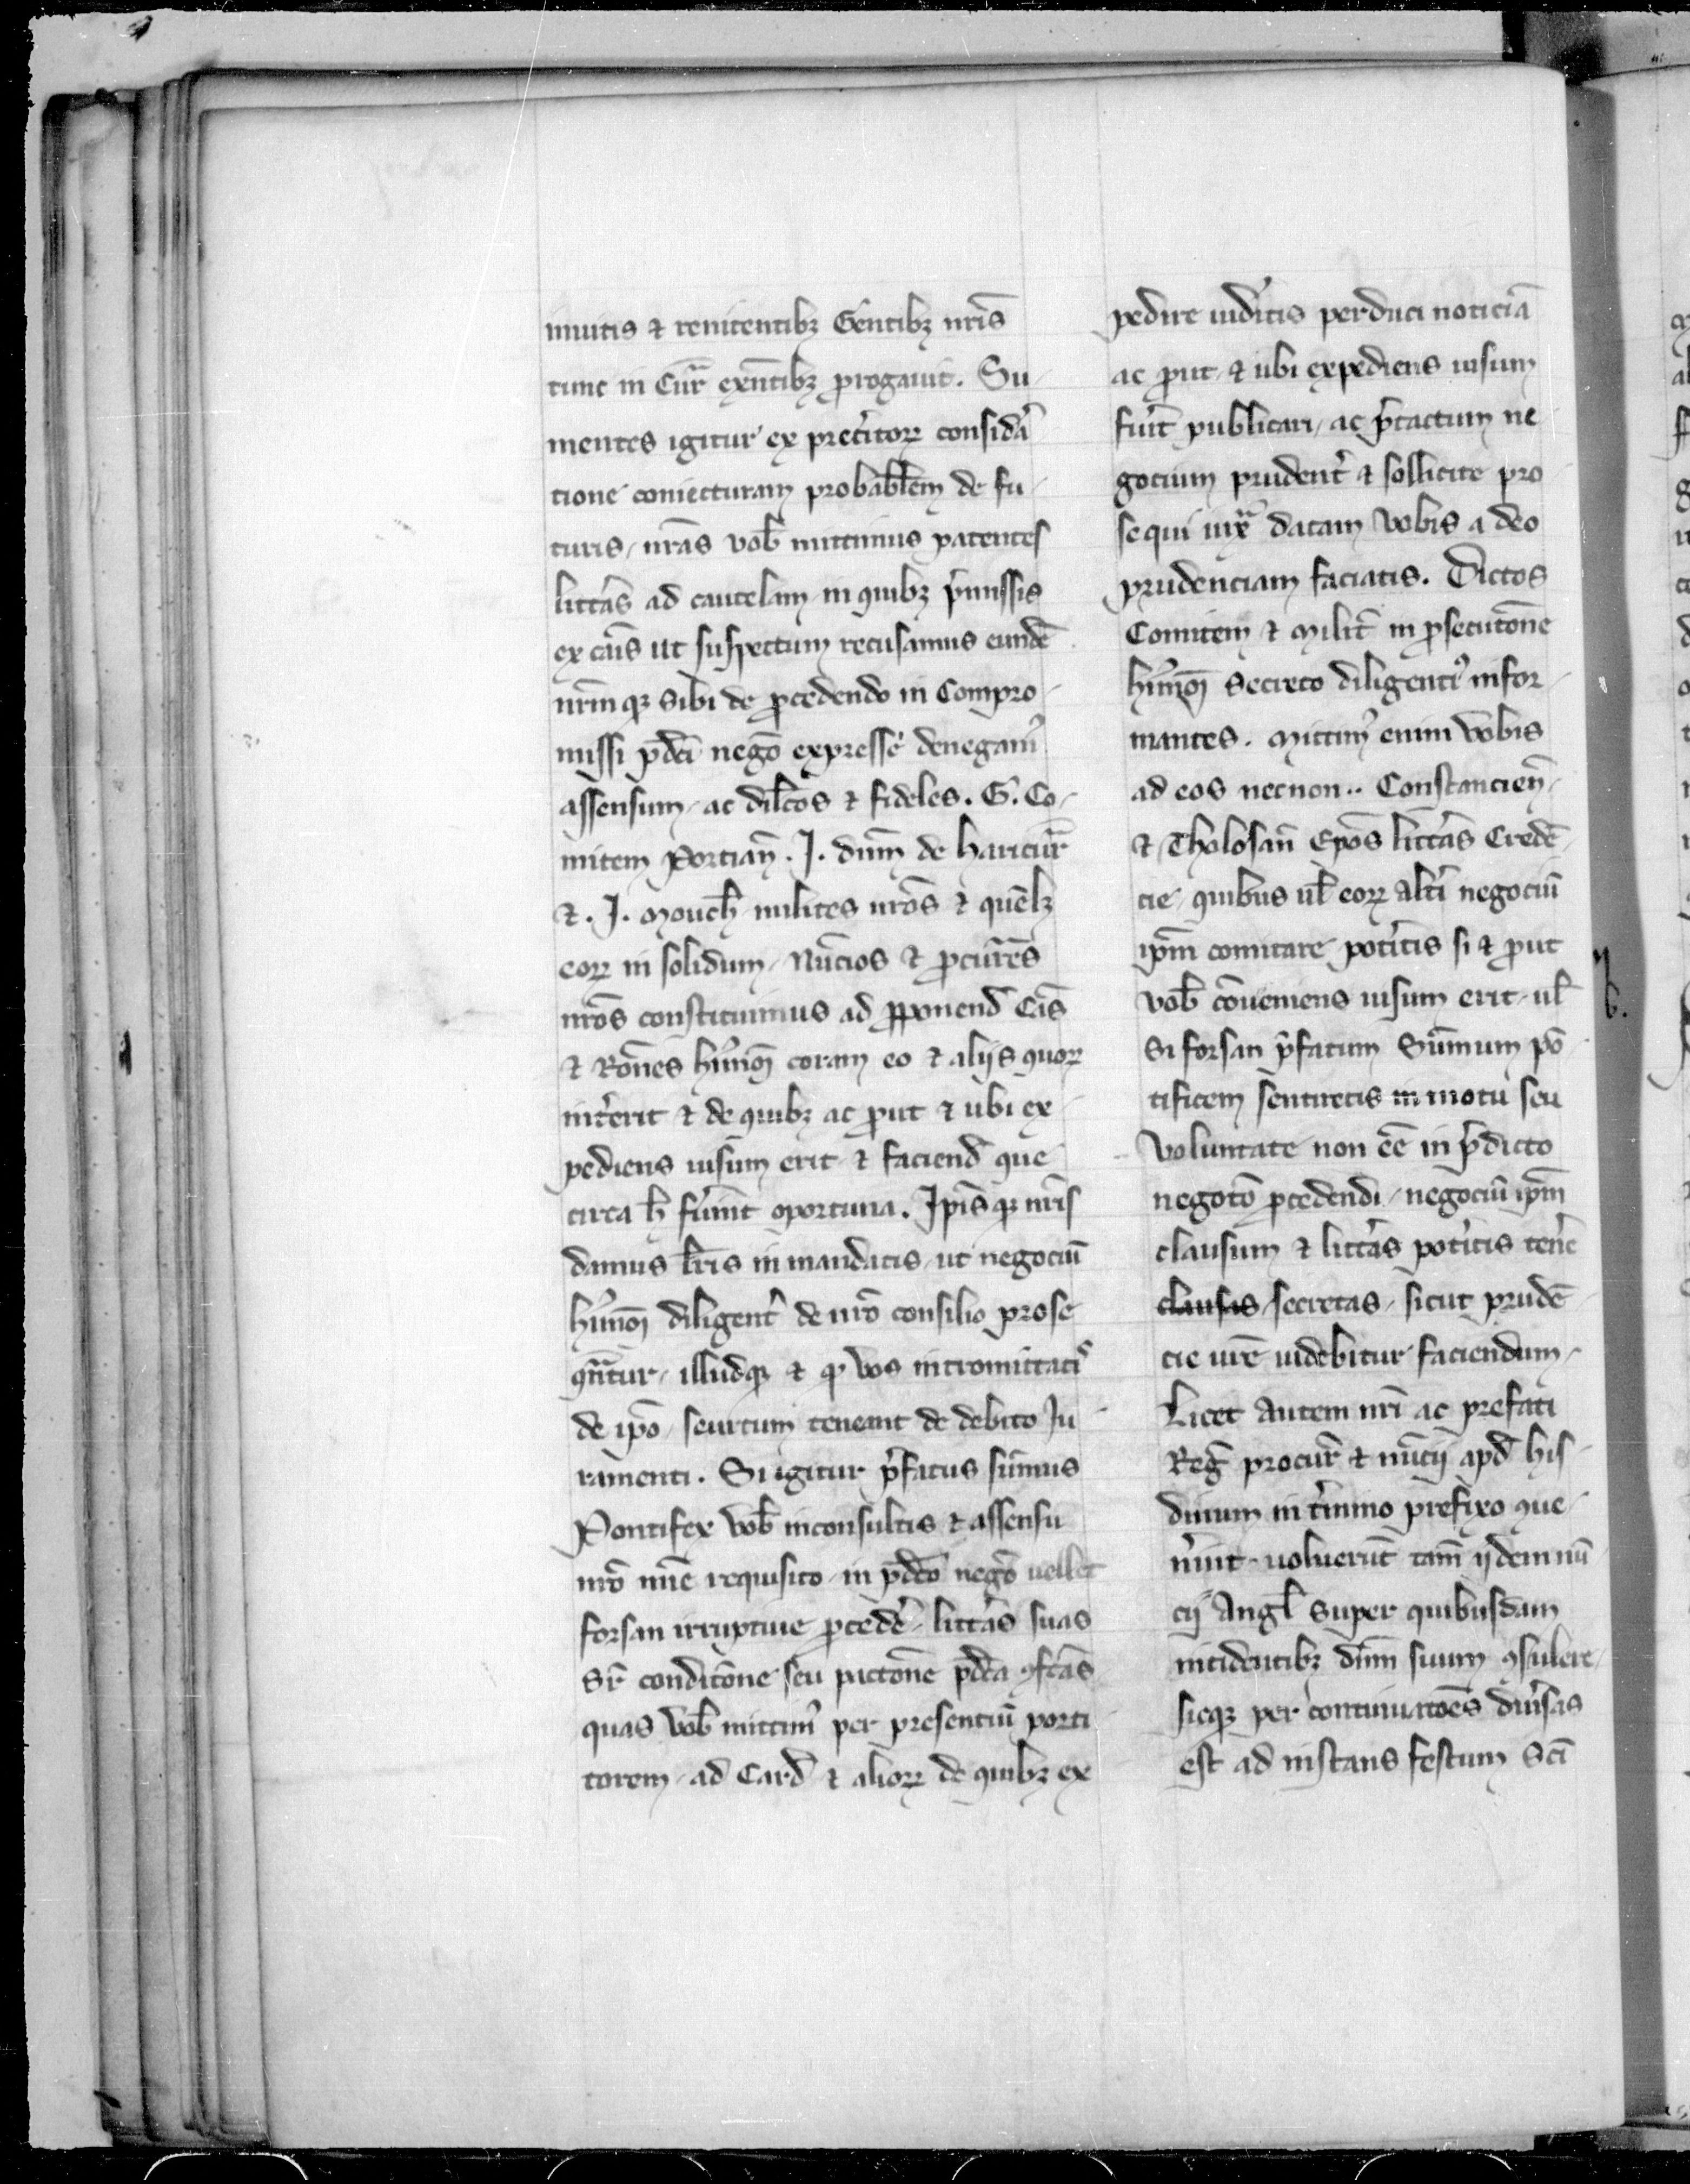 inuitis ⁊ renitentibꝫ Gentibꝫ nr̃is
tunc in Cur̃ exñtibꝫ ꝓrogauit. Su
mentes igitur ex pret̾itoꝝ considᷓa
tione coniecturam probabl̃em de fu
turis, nr̃as vob̃ mittimus patentes
litt̾as ad cautelam in quibꝫ p̾missis
ex cãis ut suspectum recusamus eundẽ
nr̃mqꝫ sibi de ꝓcedendo in Compro
missi p̃dc̃i neg̃o expresse denegam̾
assensum, ac dil̃cos ⁊ fideles. G. Co-
mitem Portiañ. J. dñm de haricur̃
⁊. J. mouch̃ milites nr̃os ⁊ quẽlꝫ
eoꝝ in solidum, Nũcios ⁊ ꝓcur̃es
nr̃os constituimus ad ꝓponend̃ Cãs
⁊ Rõnes hui̾mõi coram eo ⁊ alijs quoꝝ
int̾erit ⁊ de quibꝫ ac ꝓut ⁊ ubi ex
pediens uisum erit ⁊ faciend̃ que
circa h̃ fu̾int oportuna. Jp̃isqꝫ nr̃is
damus lr̃is in mandatis ut negociũ
hui̾mõi diligent̾ de nr̃o consilio prose
qñtur, illudqꝫ ⁊ ꝙ vos intromittatis
de ip̃o, secretum teneant de debito Ju
ramenti. Si igitur p̾fatus sum̃us
Pontifex vob̃ inconsultis ⁊ assensu
nr̃o mi̾me requisito in p̃dc̃o neg̃o uellet
forsan irruptiue ꝓced̾e, litt̾as suas
sr̃ condic̃one seu pacc̃one p̃dc̃a ꝯfc̃as
quas vob̃ mittim̾ per presentiũ porti
torem, ad Card̃ ⁊ alioꝝ de quibꝫ ex
pedire uid̾itis perduci noticiã
ac ꝓut ⁊ ubi expediens uisum
fu̾it publicari, ac p̾tactum ne
gocium prudent̾ ⁊ sollicite pro
sequi iuxᷓ datam vobis a deo
prudenciam faciatis. Dictos
Comitem ⁊ milit̾ in ꝓsecuc̃one
hui̾mõi secreto diligenti̾ infor
mantes. Mittim̾ enim vobis
ad eos necnon .. Constancieñ,
⁊ Tholosañ Ep̃os litt̾as Credẽ
cie quibus ul̃ eoꝝ alt̾i negociũ
ip̃m comitare pot̾itis si ⁊ ꝓut
vob̃ cõueniens uisum erit, ul̃
si forsan p̾fatum Sum̃um põ
tificem sentiretis in motu seu
voluntate non eẽ in p̾dicto
negoc̃o ꝓcedendi, negociũ ip̃m
clausum ⁊ litt̾as pot̾itis ten̾e
clausas, secretas, sicut prudẽ
cie ur̃e uidebitur faciendum,
Licet autem nr̃i ac prefati
Reg̃ procur̃ ⁊ nũcij apd̃ his
dinum in t̾mino prefixo que
n̾int, uoluerũt tam̃ ijdem nũ
cij Angl̃ super quibusdam
incidentibꝫ dñm suum ꝯsulere,
sicqꝫ per continuac̃oes diu̾sas
est ad instans festum Sc̃i